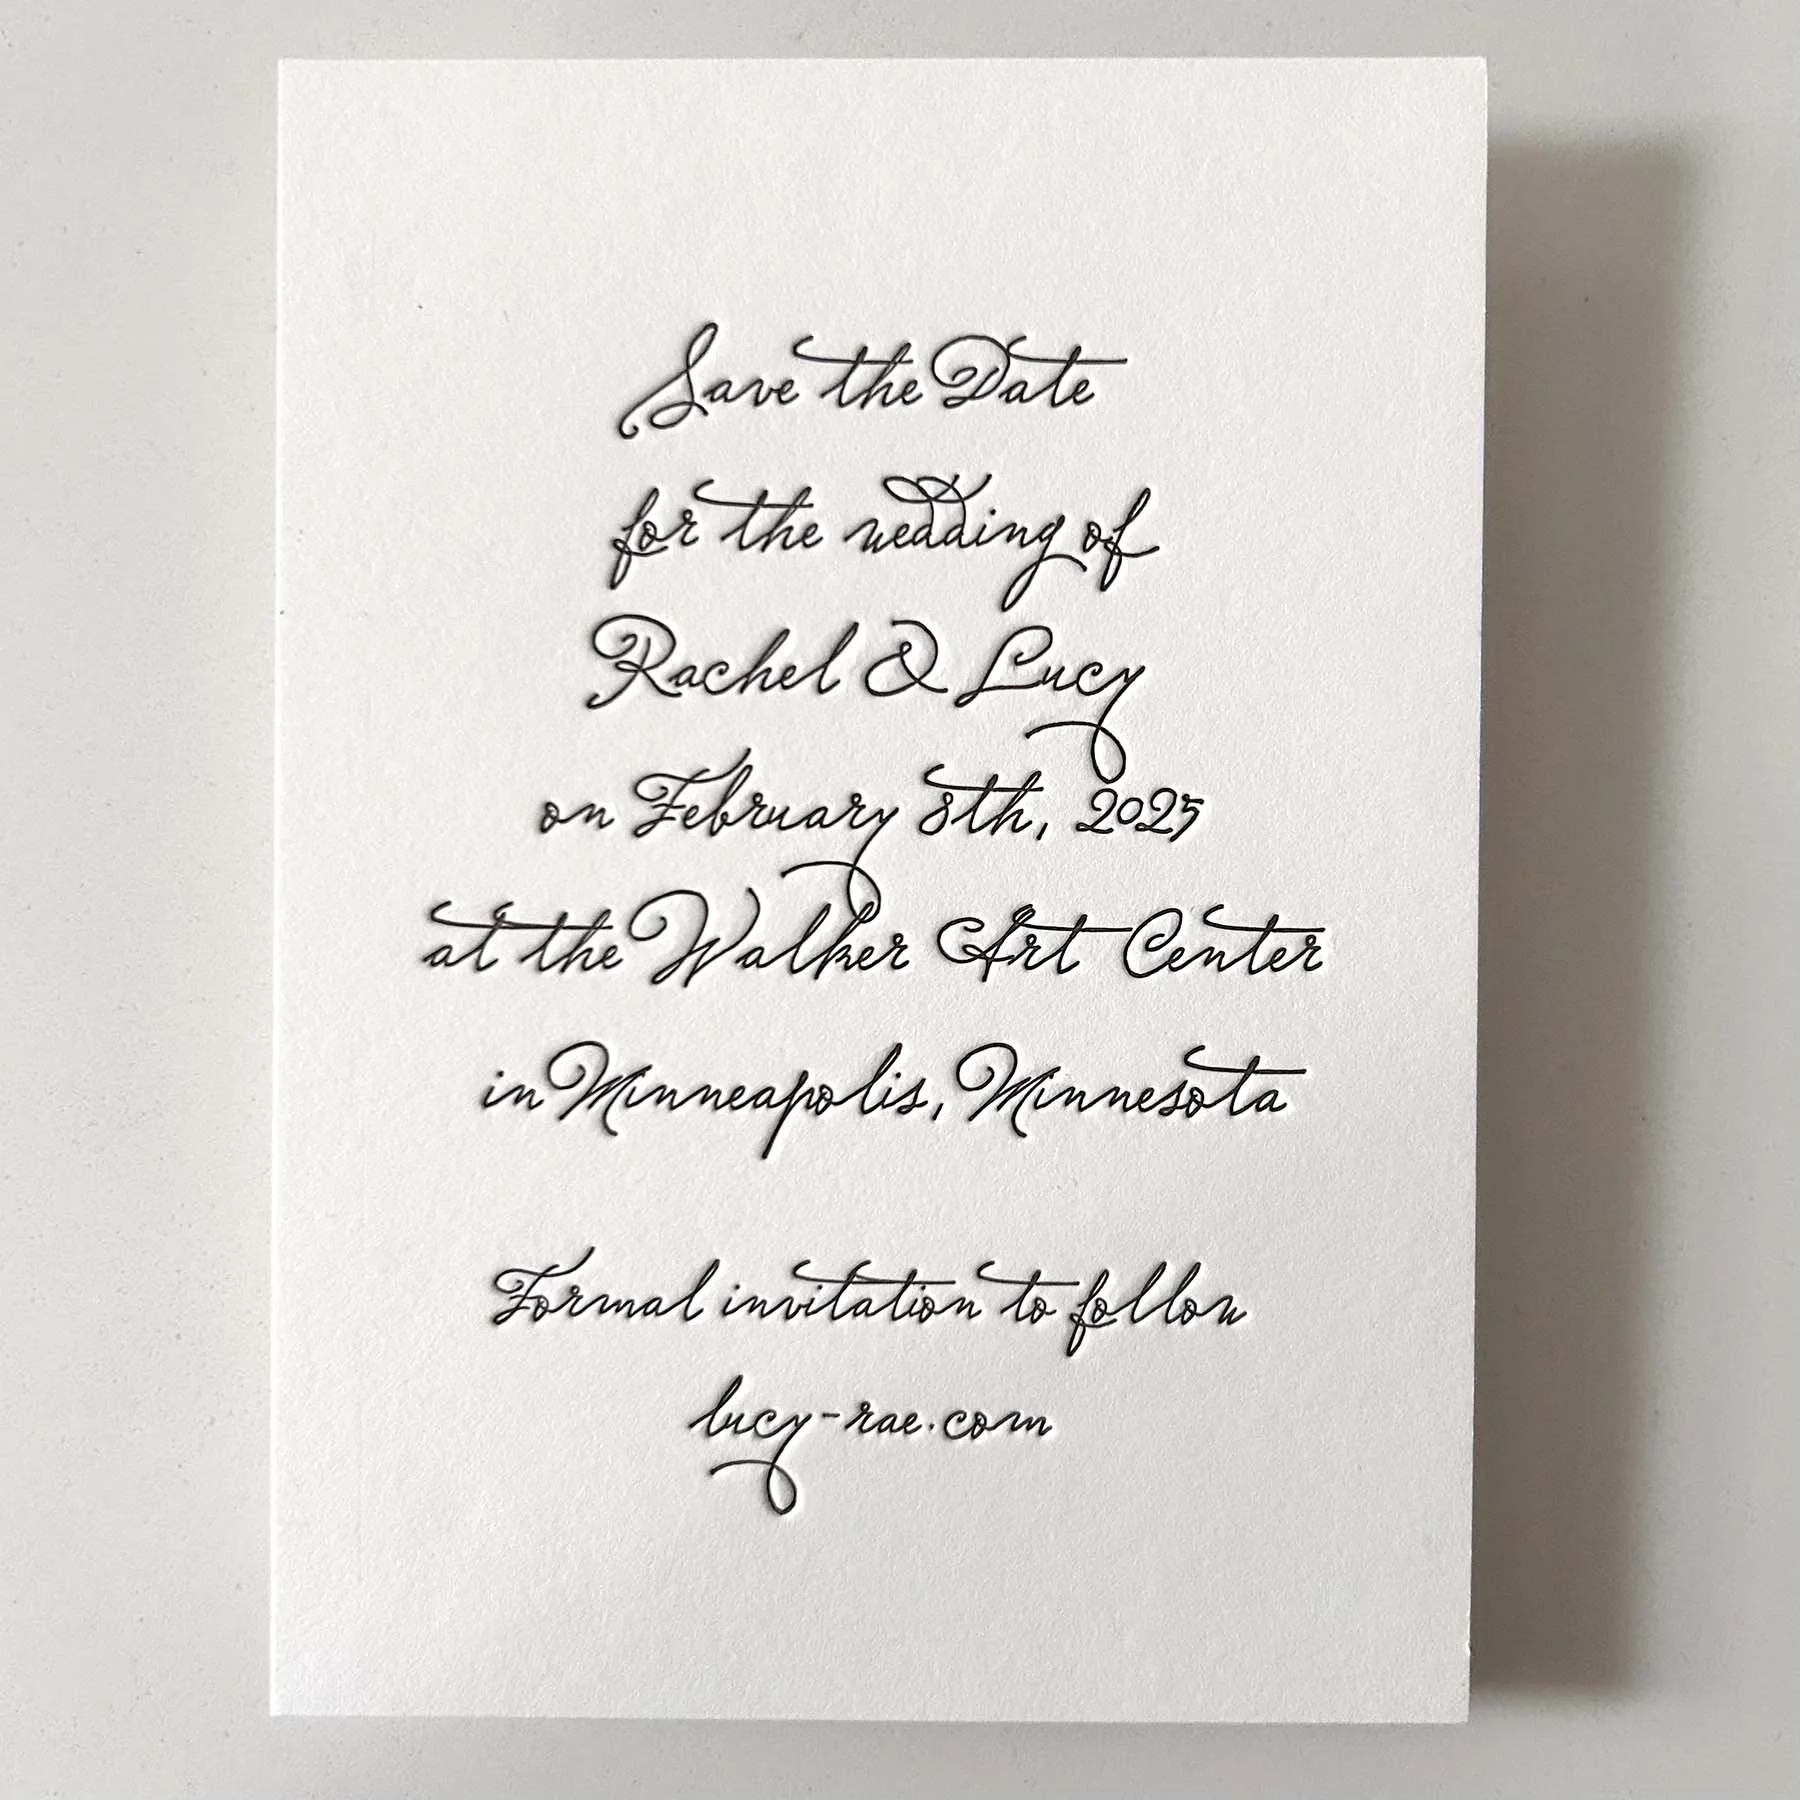 Save the Date
for the wedding of
Rachel & Lucy
on February 8th, 2025
at the Walker Art Center
in Minneapolis, Minnesota
Formal invitation to follow
lucy-rae.com